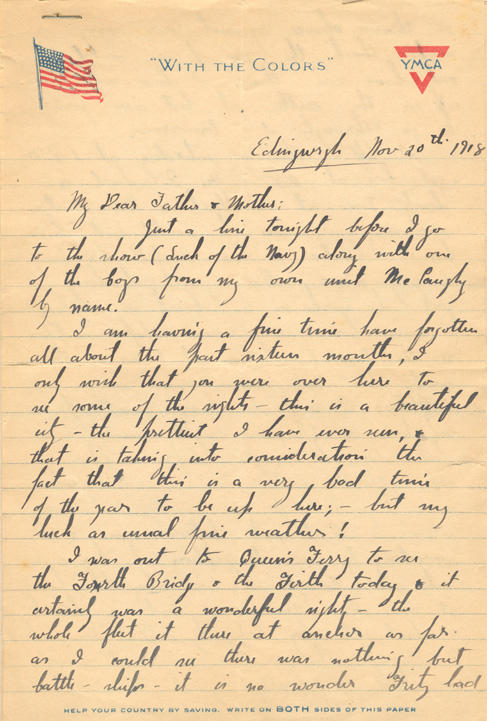 "WITH THE COLORS"
YMCA
Edingurgh Nov 20th 1918
My Dear Father & Mother:
Just a line tonight before I go
to the show (Luck of the Navy) along with one
of the boys from my own unit Mc
by name.
I am having a fine time have forgotten
all about the past sixteen months, I
only wish that you were over here to
see some of the sights – this is a beautiful
city – the prettiest I have ever seen, &
that is taking into consideration the
fact that this is a very bad time
of the year to be up here; – but my
luck as usual fine weather!
I was out to Queen's Ferry to see
the Fourth Bridge & the Firth today & it
certainly was a wonderful sight – the
whole fleet it there at anchor as far
as I could see there was nothing but
battle-ships – it is no wonder Fritz had
HELP YOUR COUNTRY BY SAVING. WRITE ON BOTH SIDES OF THIS PAPER